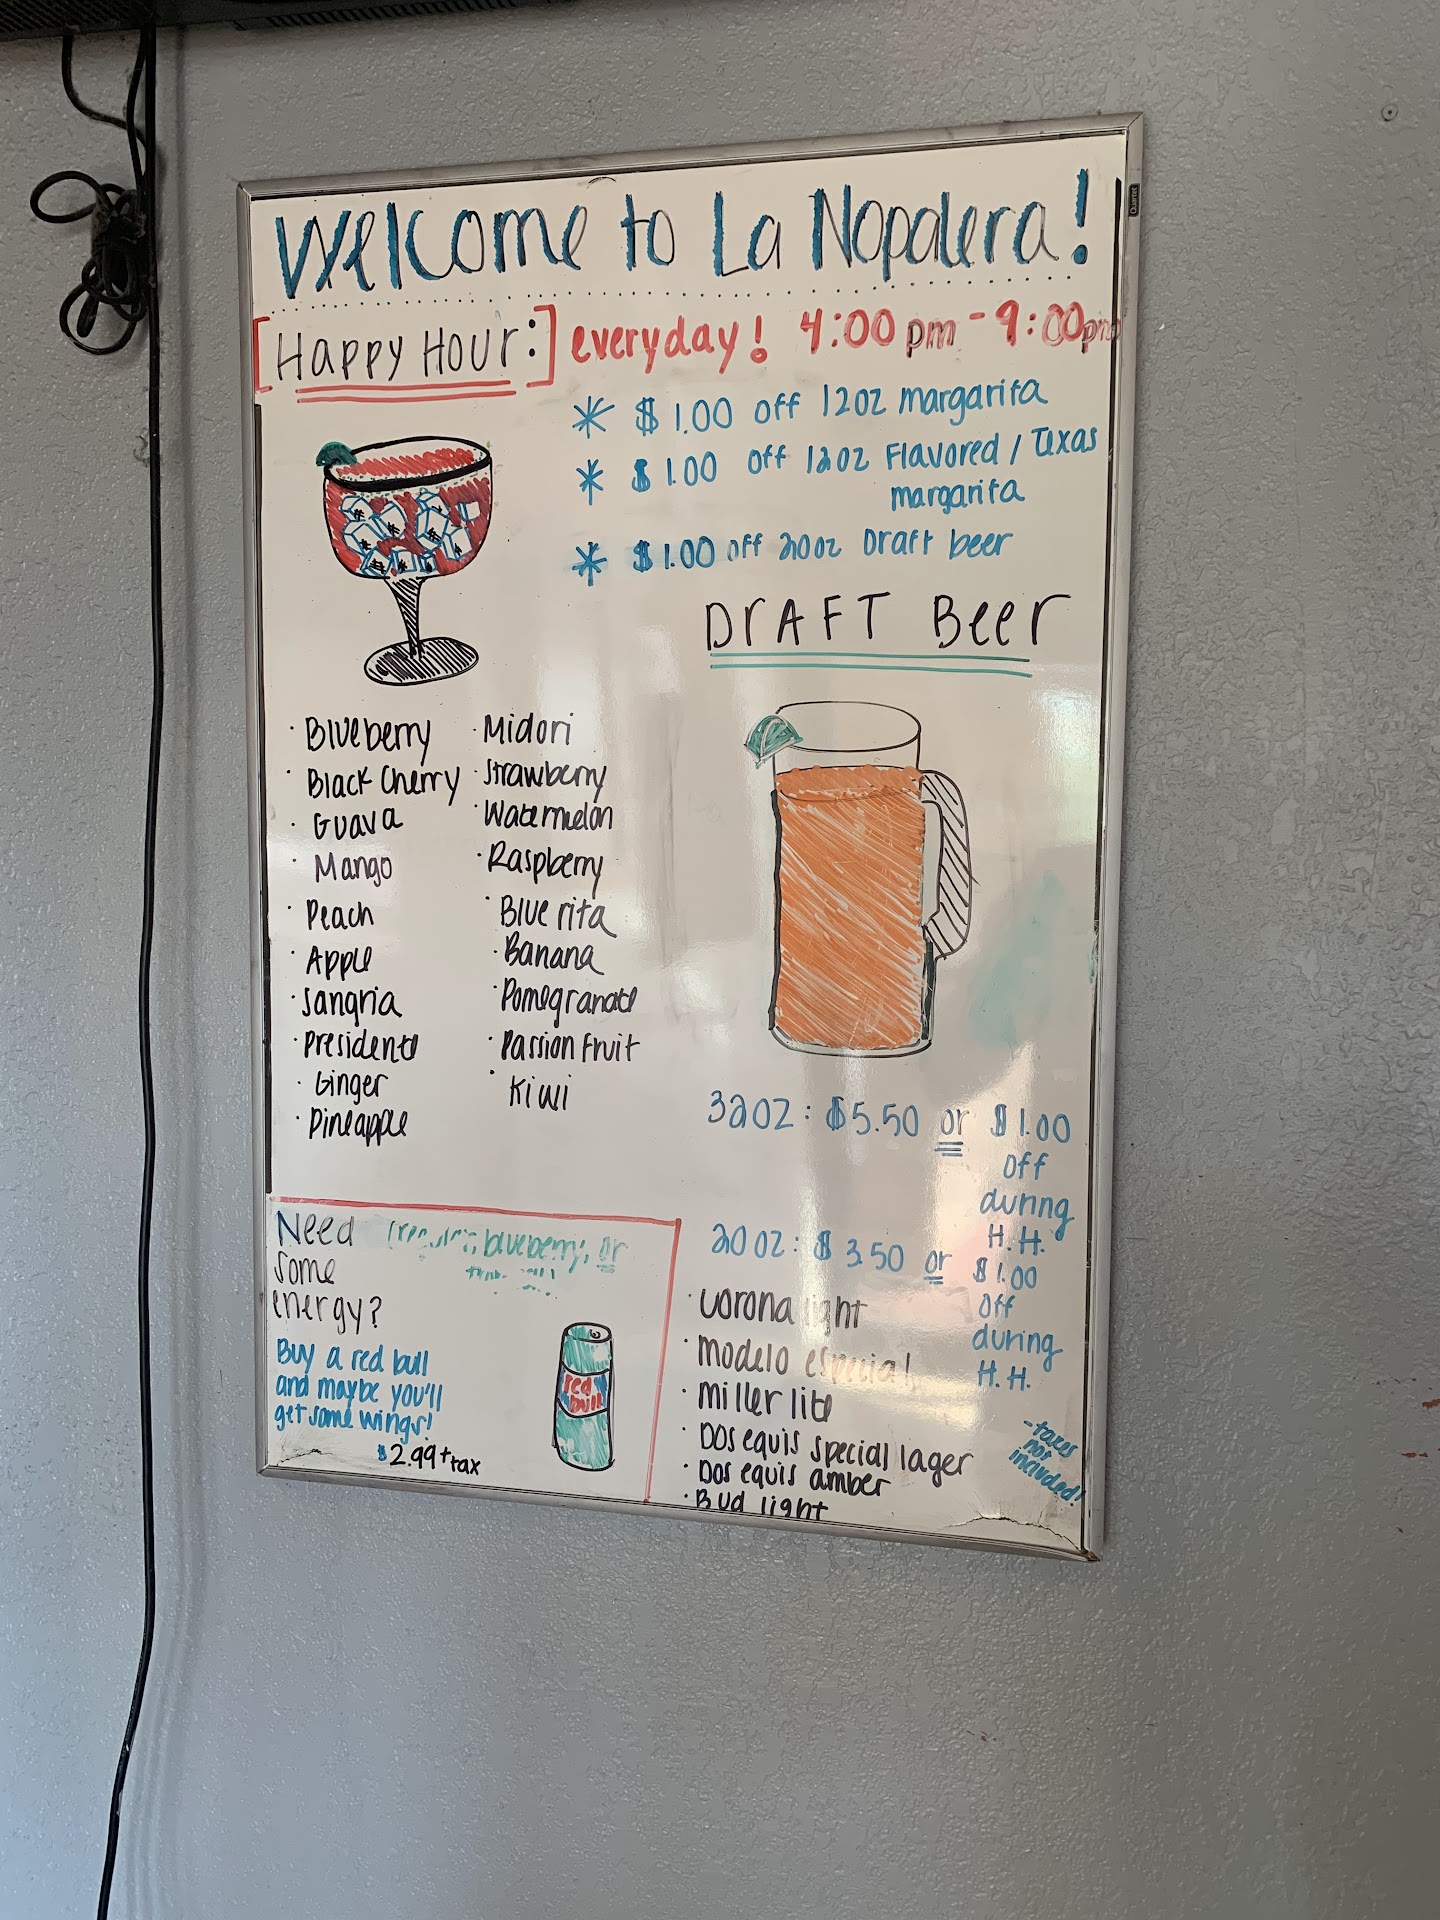 Welcome to La Nopalera!
[Happy Hour:] everyday! 4:00 pm - 9:00pm
* $1.00 off 12oz margarita
* $1.00 off 12oz Flavored / Texas
margarita
* $1.00 off 20oz Draft beer
DrAFT Beer
· Blueberry
· Black Cherry
· Guava
· Mango
· Peach
· Apple
· Sangria
· Presidente
· Ginger
· Pineapple
· Midori
· Strawberry
· Watermelon
· Raspberry
· Blue rita
· Banana
· Pomegranate
· Passion Fruit
· Kiwi
32oz: $5.50 or $1.00
off
during
H.H.
20oz: $3.50 or $1.00
off
during
H.H.
· Corona light
· Modelo especial
· Miller lite
· Dos equis special lager
· Dos equis amber
· Bud light
- taxes
not
included!
Need
some
energy?
blueberry, or
Buy a red bull
and maybe you'll
get some wings!
$2.99 + tax
red
bull
Quartet